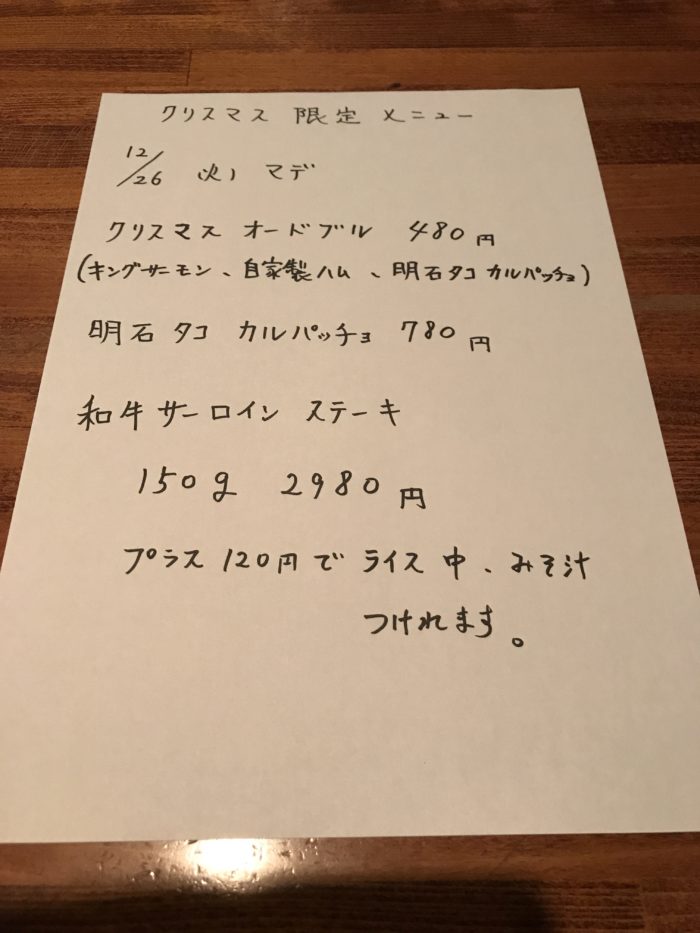 クリスマス 限定 メニュー
12/26 (火) マデ
クリスマス オードブル 480円
(キングサーモン、自家製ハム、明石タコ カルパッチョ)
明石タコ カルパッチョ 780円
和牛サーロイン ステーキ
150g 2980円
プラス120円で ライス中、みそ汁
つけれます。